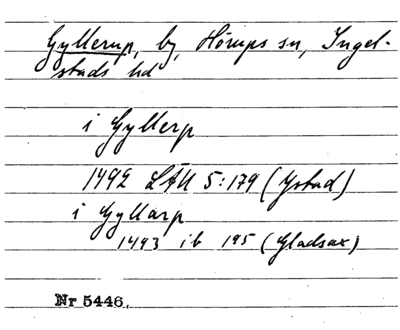 Gyllerup, by, Hörups sn, Ingel-
stads hd
i Gyllerp
1492 LÄU 5:179 (Ystad)
i Gyllarp
1493 ib 195 (Gladsax)
Nr 5446.